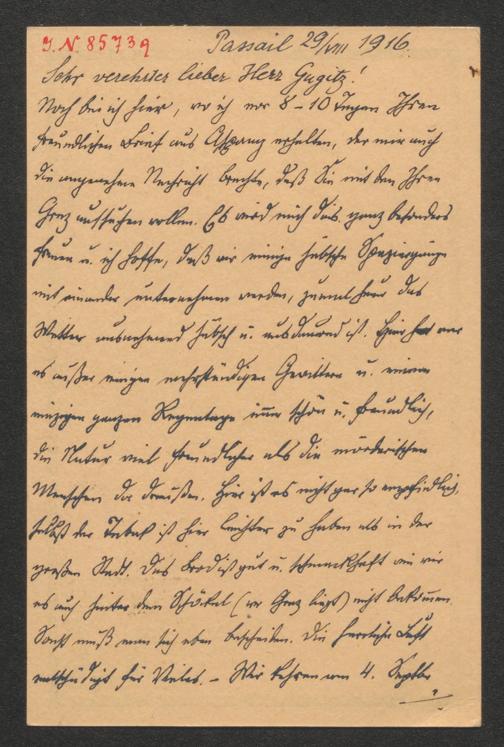 J.N. 85739
Passail 29/VIII 1916.
Sehr verehrter lieber Herr Gugitz!
Noch bin ich hier, wo ich vor 8–10 Tagen Ihren
freundlichen Brief aus Aspang erhalten, der mir auch
die angenehme Nachricht brachte, daß Sie mit den Ihren
Graz aufsuchen wollen. Es wird mich das ganz besonders
freuen u. ich hoffe, daß wir einige hübsche Spaziergänge
mit einander unternehmen werden, zumal heuer das
Wetter ausnehmend hübsch u. ausdauernd ist. Hier war
es außer einigen mehrstündigen Gewittern u. einem
einzigen ganzen Regentage immer schön u. freundlich,
die Natur viel freundlicher als die mörderischen
Menschen da draußen. Hier ist es nicht gar so empfindlich,
selbst der Tabak ist hier leichter zu haben als in der
großen Stadt. Das Brod ist gut u. schmackhaft wie wir
es auch hinter dem Schöckel (wo Graz liegt) nicht bekommen.
Sonst muß man sich eben bescheiden. Die herrliche Luft
entschädigt für Vieles. – Wir kehren am 4. Septbr